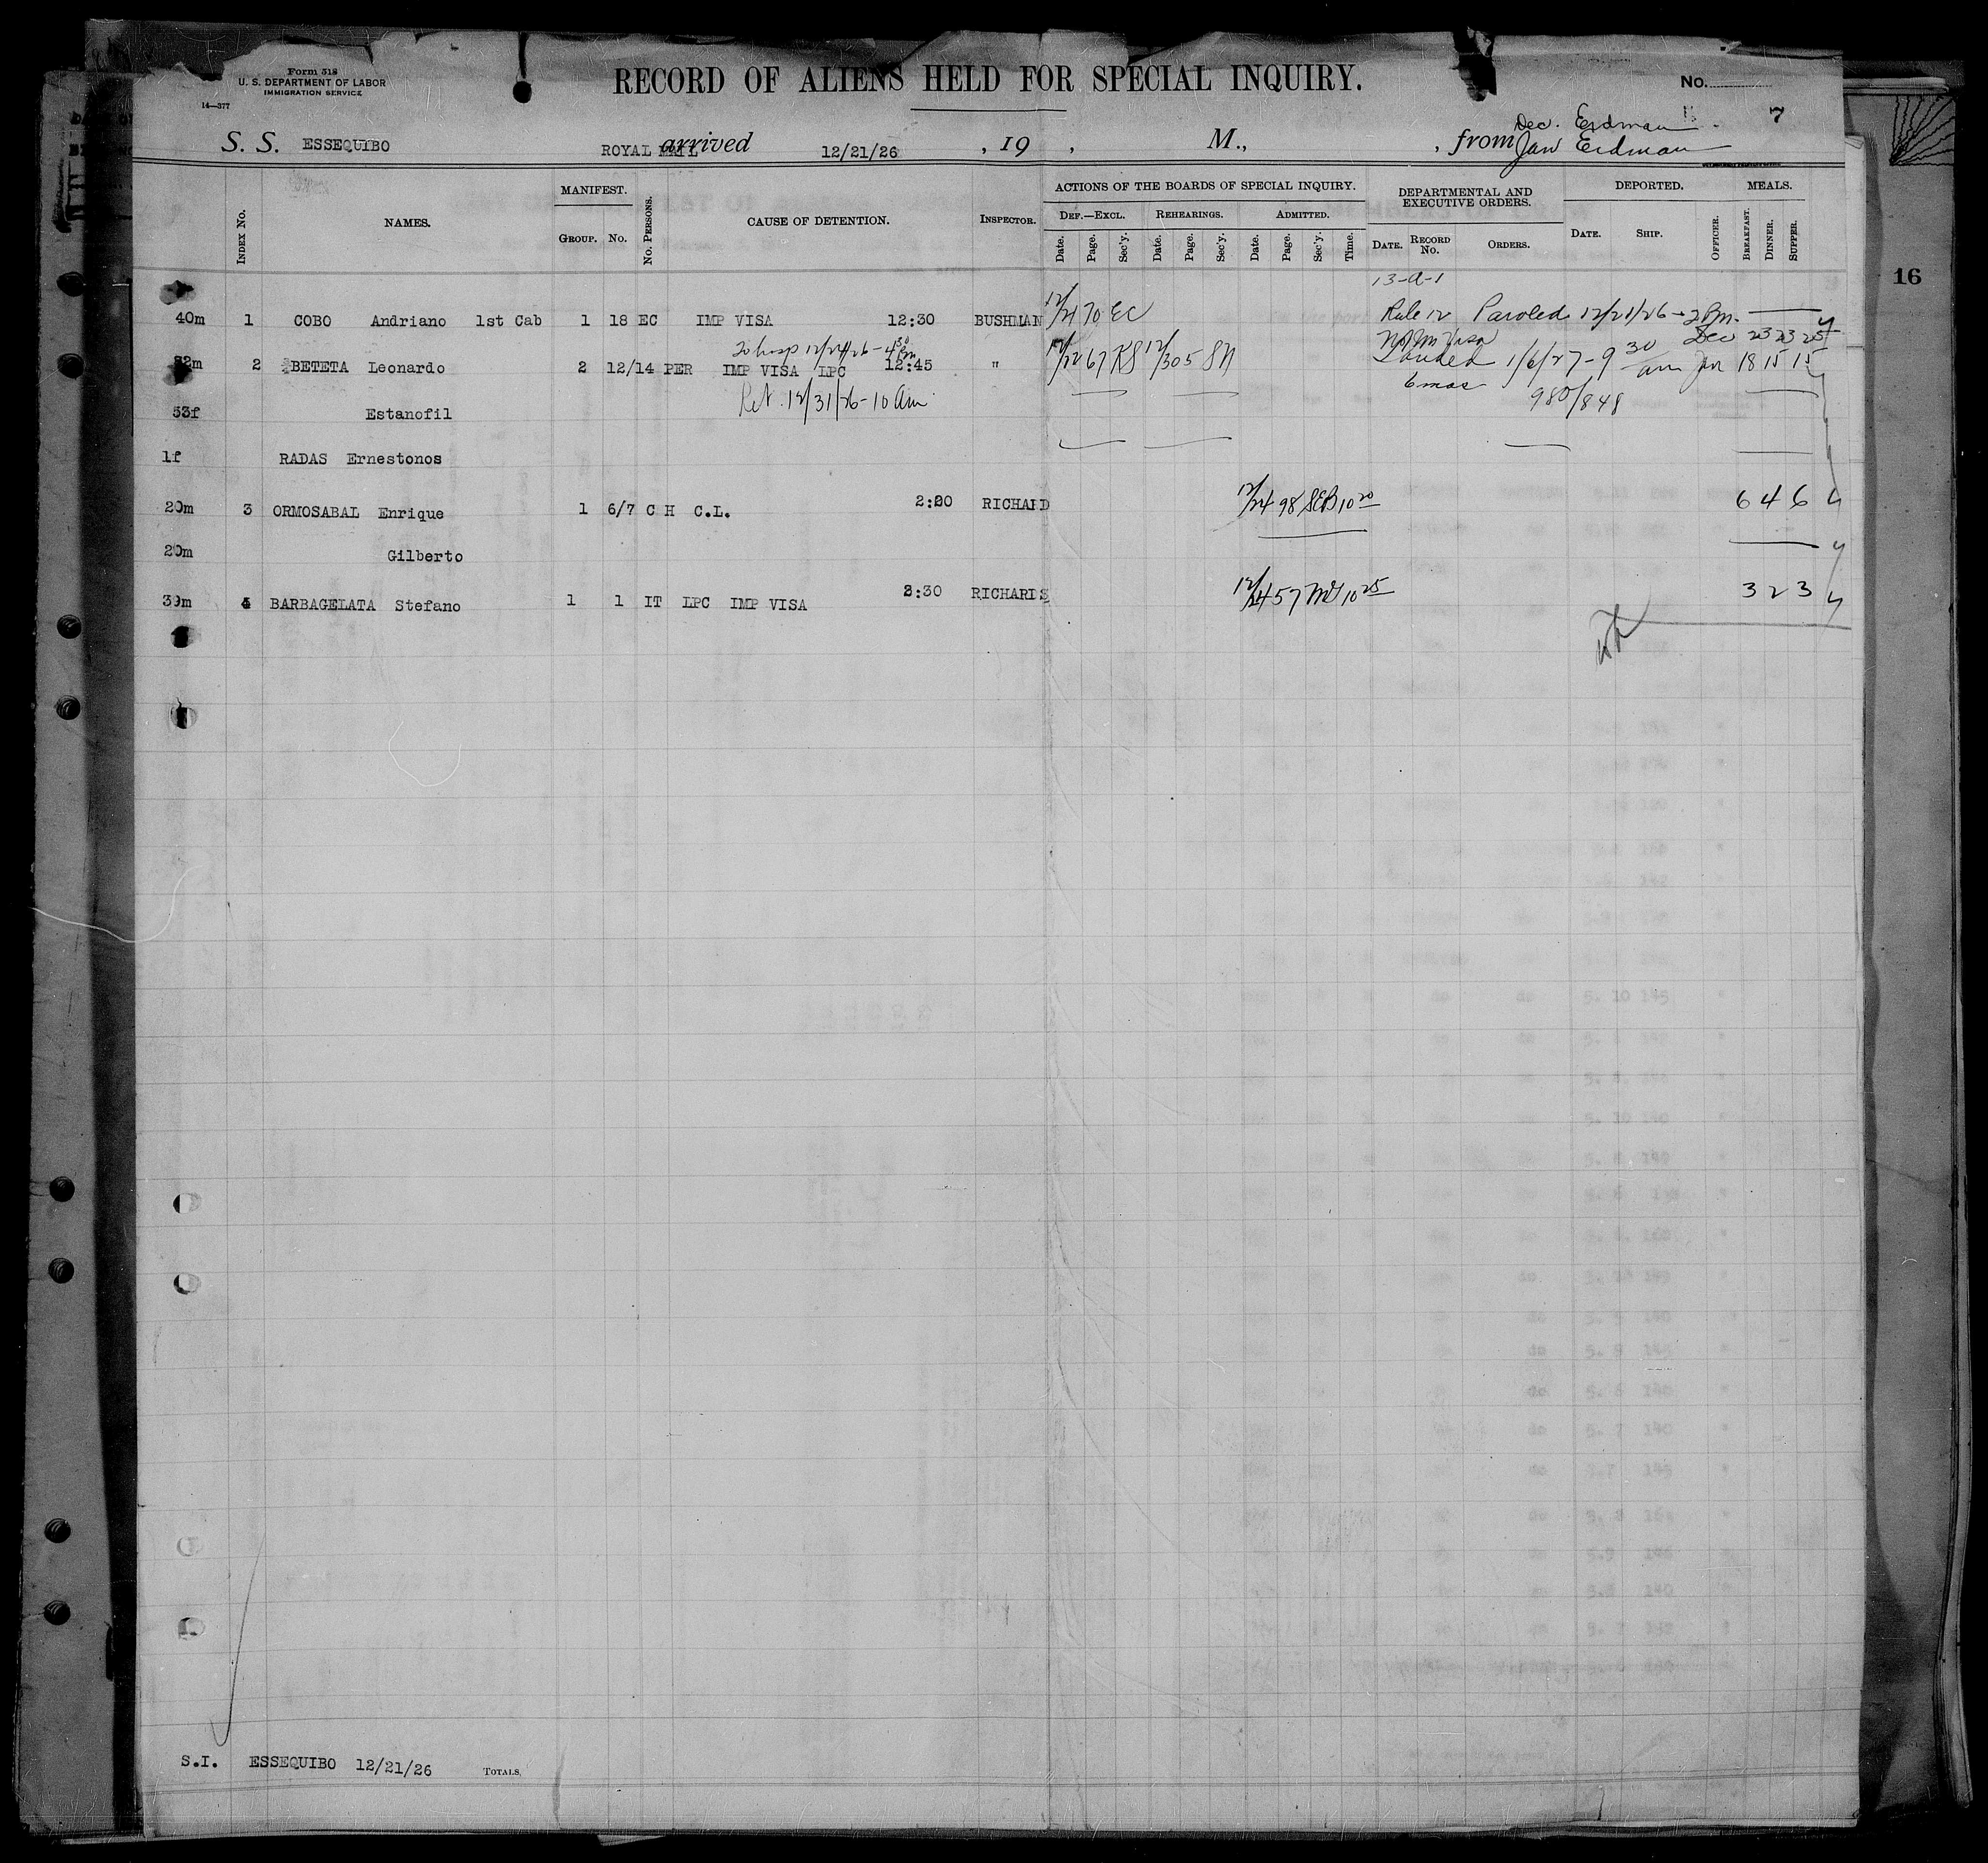 Form 518
U. S. DEPARTMENT OF LABOR
IMMIGRATION SERVICE
14—377
RECORD OF ALIENS HELD FOR SPECIAL INQUIRY.
No.
7
Dec. Erdman
S. S. ESSEQUIBO ROYAL MAIL arrived 12/21/26 , 19 , M., , from Jan Erdman
INDEX No. NAMES. MANIFEST. GROUP. No. No. PERSONS. CAUSE OF DETENTION. INSPECTOR. ACTIONS OF THE BOARDS OF SPECIAL INQUIRY. DEPARTMENTAL AND EXECUTIVE ORDERS. DEPORTED. MEALS.
DEF.—EXCL. REHEARINGS. ADMITTED.
Date. Page. Sec'y. Date. Page. Sec'y. Date. Page. Sec'y. Time. DATE. RECORD No. ORDERS. DATE. SHIP. OFFICER. BREAKFAST. DINNER. SUPPER.
16
13-a-1
40m 1 COBO Andriano 1st Cab 1 18 EC IMP VISA 12:30 BUSHMAN 70 EC Rule 12 Paroled 12/21/26 - 2 Pm.
To hosp 12/24/26 - 4 30 Pm Dec 23 23 25
2 BETETA Leonardo 2 12/14 PER IMP VISA LPC 12:45 " 12/22 67 KS 12/30 5 SN Landed 1/6/27 - 9 30 am Jan 18 15 15
Ret. 12/31/26 - 10 am 6 mos 980/848
53f Estanofil
1f RADAS Ernestonos
20m 3 ORMOSABAL Enrique 1 6/7 C H C.L. 2:20 RICHARD 12/24 98 SEB 10 20 6 4 6
20m Gilberto
39m 4 BARBAGELATA Stefano 1 1 IT LPC IMP VISA 2:30 RICHARDS 12/24 57 10 25 3 2 3
S.I. ESSEQUIBO 12/21/26 TOTALS,